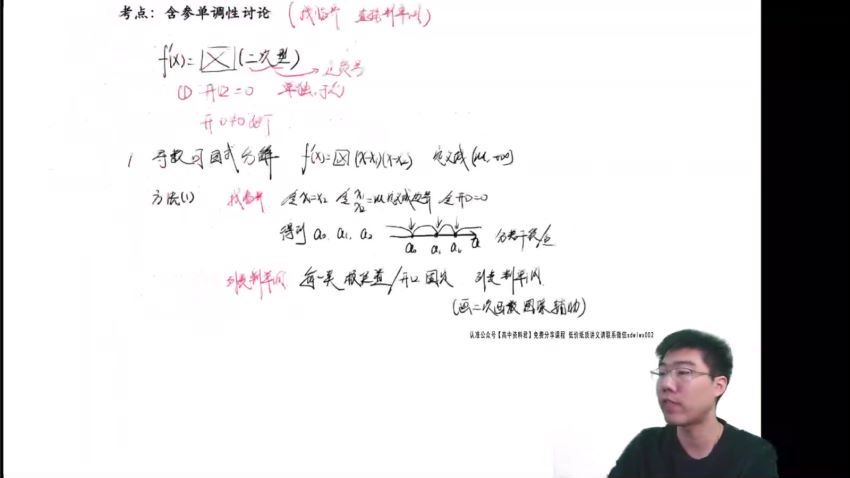 考点：含参单调性讨论 (找临界 直接判单调)
f'(x)= (二次型) 正负号
(1) 开口=0 单独讨论
开口≠0
1 导数可因式分解 f'(x)= (x-x₁)(x-x₂) 定义域(m,+∞)
方法(1) 找临界 令x₁=x₂ 令x₁ x₂=m 定义域边界 令开口=0
得到 a₀, a₁, a₂ a₀ a₁ a₂ a 分若干段/点
列表判单调 每一类 根定着/开口固定 列表判单调
(画二次函数图象辅助)
认准公众号【高中资料君】免费分享课程 低价纸质讲义请联系微信